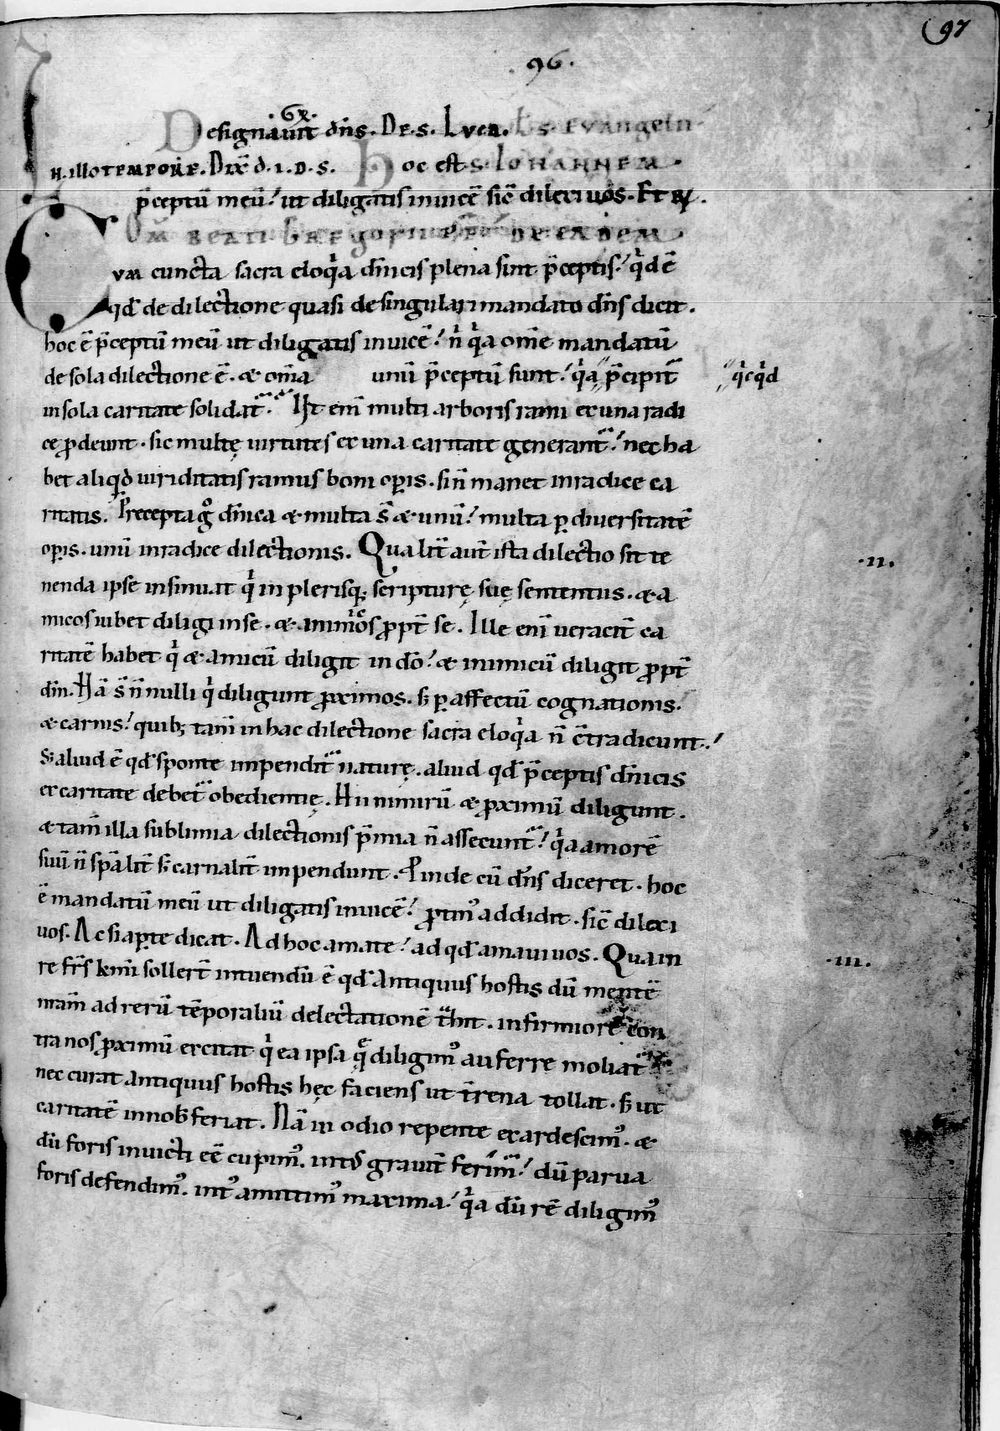 97
96.
Designauit dn̄s. De. s. Luca. Ls. Euangelii
In illo tempore. Dix̄ d. i. d. s. Hoc est s. Iohannem.
p̄ceptū meū. ut diligatis inuicē sic̄ dilexi uos. Et R̄.
Om̄ beati Gregorii pp̄ de eadem.
Cum cuncta sacra eloq̄a dn̄icis plena sint p̄ceptis. q̄d ē
qd̄ de dilectione quasi de singulari mandato dn̄s dicit.
hoc ē p̄ceptū meū ut diligatis inuicē. n̄ q̄a om̄e mandatū
de sola dilectione ē. & om̄ia unū p̄ceptū sunt. q̄a p̄cipit̄ q̄cq̄d
in sola caritate solidat̄. Ut enī multi arboris rami ex una radi
ce ꝓdeunt. sic multę uirtutes ex una caritate generant̄. nec ha
bet aliq̄d uiriditatis ramus boni opis. si n̄ manet in radice ca
ritatis. Precepta g̊ dn̄ica & multa s̄ & unū. multa ꝑ diuersitatē
opis. unū in radice dilectionis. Qualit̄ aut̄ ista dilectio sit te
·ii·
nenda ipse insinuat q̄ in plerisq; scripturę suę sententiis. & a
micos iubet diligi in se. & inimicos ꝓpt̄ se. Ille enī ueracit̄ ca
ritatē habet q̄ & amicū diligit in dō. & inimicū diligit ꝓpt̄
dm̄. Nā s̄ n̄nulli q̄ diligunt ꝓximos. s; ꝑ affectū cognationis.
& carnis. quib; tam̄ in hac dilectione sacra eloq̄a n̄ c̄tradicunt.
S; aliud ē qd̄ sponte impendit̄ naturę. aliud qd̄ p̄ceptis dn̄icis
ex caritate debet̄ obedientię. Hi nimirū & ꝓximū diligunt.
& tam̄ illa sublimia dilectionis p̄mia n̄ assecunt̄. q̄a amorē
suū n̄ sp̄alit̄ s; carnalit̄ impendunt. Proinde cū dn̄s diceret. hoc
ē mandatū meū ut diligatis inuicē. ꝓtin᷒ addidit. sic̄ dilexi
uos. Ac si aꝑte dicat. Ad hoc amate. ad qd̄ amaui uos. Qua in
·iii·
re fr̄s km̄i sollert̄ intuendū ē qd̄ antiquus hostis dū mentē
nram̄ ad rerū tēporaliū delectationē t̄hit. infirmiorē con
tra nos ꝓximū excitat q̄ ea ipsa q̄ diligim᷒ auferre moliat̄
nec curat antiquus hostis hęc faciens ut t̄rena tollat. s; ut
caritatē in nob̄ feriat. Nā in odio repente exardescim᷒. &
dū foris inuicti eē cupim᷒. int᷒ grauit̄ ferim̄. dū parua
foris defendim᷒. int᷒ amittim᷒ maxima. q̄a dū rē diligim᷒